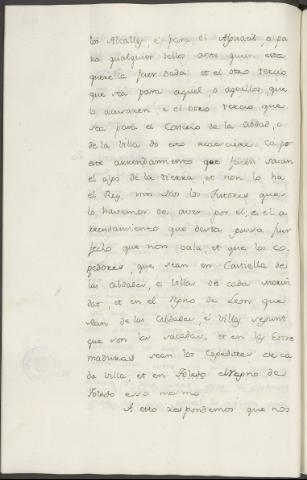 los Alcalles, é para el Alguacil, o pa
ra qualquier dellos ante quien esta
querella fuer dada: et el otro tercio
que sea para aquel o aquellos que
lo acusaren, é el otro tercio que
sea para el Conceio de la Cibdad, o
de la Villa do esto acaeciere. Ca por
este arrendamiento que facen sacan
el apo de la tierra, et non lo ha
el Rey, nin Nos los Tutores que
lo havemos de aver por él; é si el a
rrendamiento que desta guisa fuer
fecho que non vala, et que los Co
gedores, que sean en Castiella de
las Cibdades, é Villas de cada Merin
dat, et en el Regno de Leon que
sean de las Cibdades, é Villas segunt
que son las sacadas, et en las Estre
maduras sean los Cogedores de ca
da Villa, et en Toledo el Regno de
Toledo esso mismo.
A esto respondemos que nos